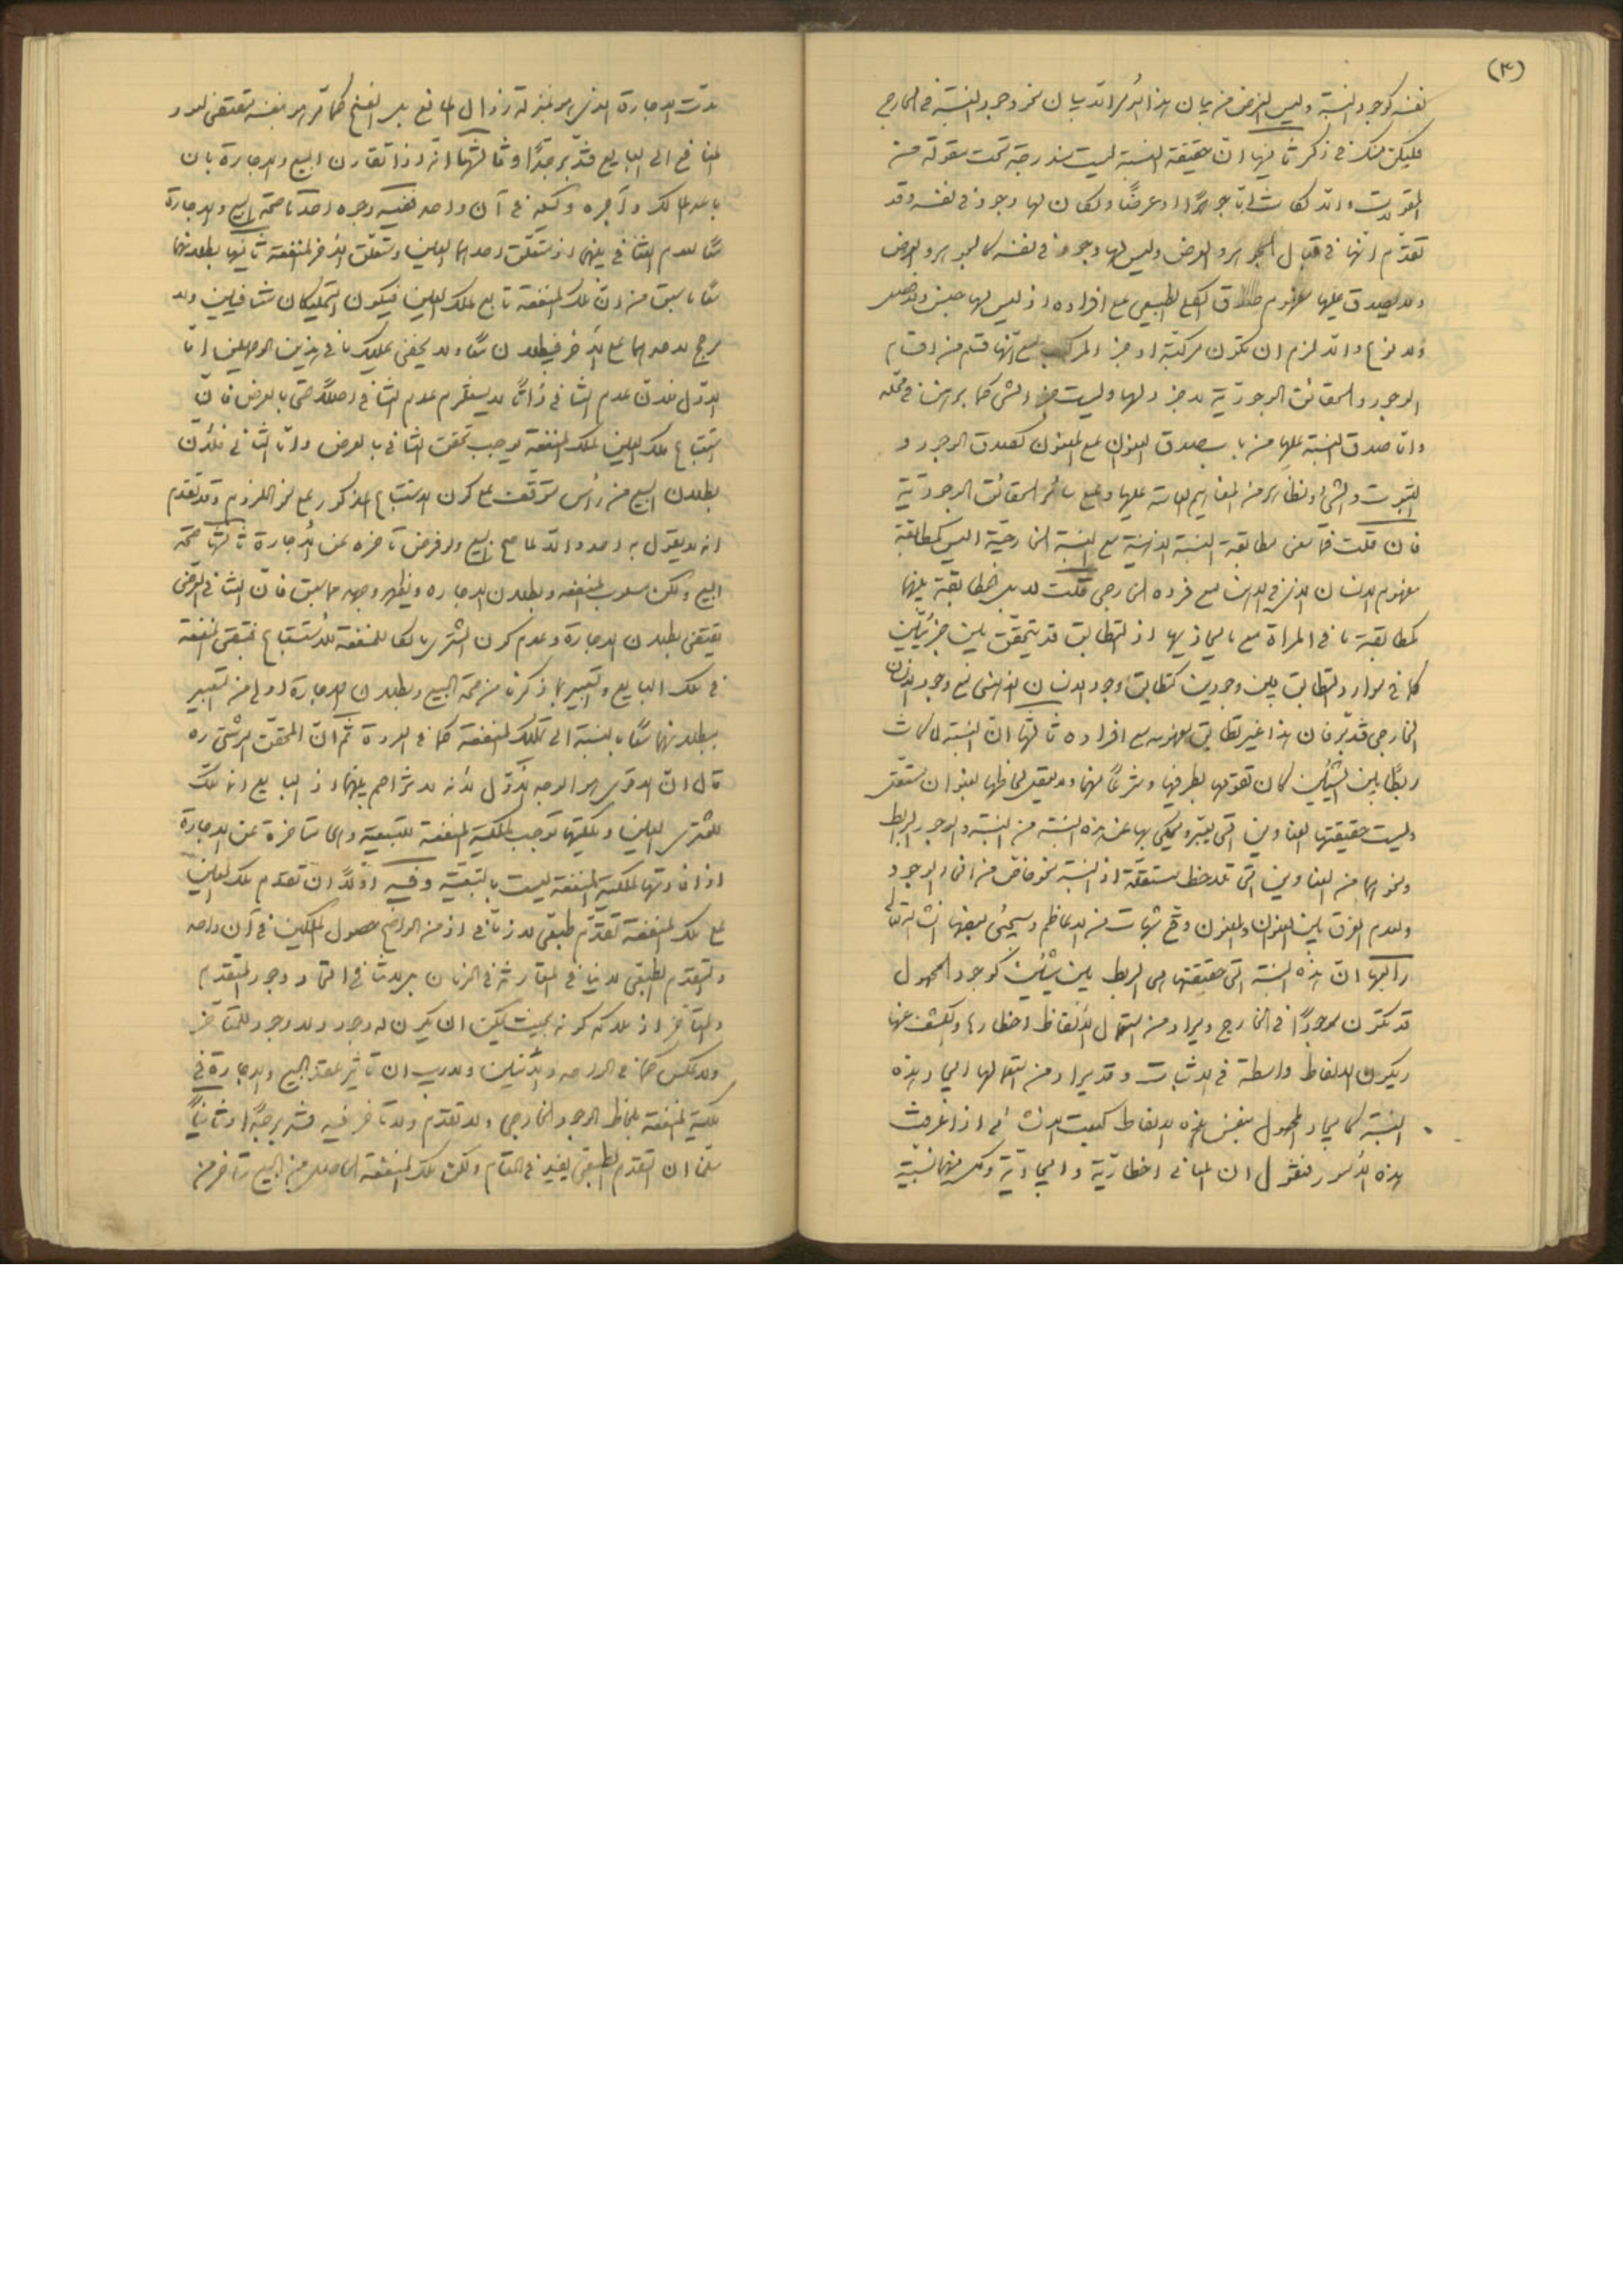 (٣)
نفسه كوجود النسبة وليس الغرض من بيان هذا الأمر الا بيان نحو وجود النسبة في الخارج
فليكن منك في ذكر ثانيها انّ حقيقة النسبة ليست مندرجة تحت مقولة من
المقولات والا لكانت اما جوهرًا او عرضًا ولكان لها وجود في نفسه وقد
تقدّم انها في قبال الجوهر والعرض وليس لها وجود في نفسه كالجوهر والعرض
ولا يصدق عليها مفهوم صدق الكلي الطبيعي على افراده اذ ليس لها جنس وفصل
ولا نوع والا لزم ان تكون مركبة او جزء المركب مع انّها قسم من اقسام
الوجود والحقائق الوجوديّة لا جزء لها وليست جزء لشئ كما برهن في محلّه
وامّا صدق النسبة عليها من باب صدق العنوان على المعنون كصدق الوجود و
الثبوت والشئ ونظائره من المفاهيم العامة عليها وعلى سائر الحقائق الوجوديّة
فان قلت فما معنى مطابقة النسبة الذهنية مع النسبة الخارجيّة اليس كمطابقة
مفهوم الانسان الذي في الذهن مع فرده الخارجي قلت لا بل المطابقة بينهما
كمطابقة ما في المراة مع ما يحاذيها اذ التطابق قد يتحقّق بين جزئيّين
كما في موارد التطابق بين وجودين كتطابق وجود الانسان الذهني مع وجود الانسان
الخارجي فتدبّر فان هذا غير تطابق مفهومه مع افراده ثالثها انّ النسبة لما كانت
ربطًا بين الشيئين كان تقومها بطرفيها وشرحًا لهما ولا يعقل لحاظها بعنوان مستقل
وليست حقيقتها العناوين التي يعبّر ويحكى بها عن هذه النسبة من النسبة والوجود الرابط
ونحوهما من العناوين التي تلاحظ مستقلّة اذ النسبة نحو خاصّ من انحاء الوجود
ولعدم الفرق بين العنوان والمعنون وقع شبهات من الاعاظم وسيجئ بعضها انشاء الله تعالى
رابعها انّ هذه النسبة التي حقيقتها هي الربط بين شيئين كوجود المحمول
قد تكون موجودًا في الخارج ويراد من استعمال الألفاظ اخطارها والكشف عنها
ويكون الالفاظ واسطة في الاثبات وقد يراد من استعمالها ايجاد هذه
النسبة كايجاد المحمول بنفس هذه الالفاظ كبعت الانشائي اذا عرفت
هذه الأمور فنقول ان المعاني اخطاريّة وايجاديّة وكل منهما نسبيّة
مدّت الاجارة الذي هو بمنزلة زوال المانع بل الفسخ كما مر هو بنفسه يقتضي لعود
المنافع الى البايع فتدبّر جيّدًا وثالثها انّه اذا تقارن البيع والاجارة بان
باعه المالك وآجره وكيله في آن واحد ففيه وجوه احدها صحة البيع والاجارة
معًا لعدم التنافي بينهما اذ متعلّق احدهما العين ومتعلّق الأخر المنفعة ثانيها بطلانهما
معًا لما سبق من انّ ملك المنفعة تابع لملك العين فيكون التمليكان متنافيين ولا
مرجح لاحدهما على الأخر فيبطلان معًا ولا يخفى عليك ما في هذين الوجهين امّا
الاوّل فلانّ عدم التنافي ذاتًا لا يستلزم عدم التنافي اصلًا حتى بالعرض فانّ
استتباع ملك العين لملك المنفعة يوجب تحقق التنافي بالعرض وامّا الثاني فلأنّ
بطلان البيع من رأس متوقف على كون الاستتباع المذكور على نحو اللزوم وقد تقدم
انه لا يقول به احد والا لما صح البيع ولو فرض تاخره عن الأجارة ثالثها صحة
البيع ولكن مسلوب المنفعة وبطلان الاجارة ويظهر وجهه مما سبق فانّ التنافي العرضي
يقتضي بطلان الاجارة وعدم كون المشتري مالكًا للمنفعة للأستتباع فتبقى المنفعة
في ملك البايع وتعبير بما ذكرنا من صحة البيع وبطلان الاجارة اولى من تعبير
ببطلانهما معًا بالنسبة الى تمليك المنفعة كما في العروة ثم انّ المحقّق الرشتي ره
قال انّ الاقوى هو الوجه الأوّل لأنه لا تزاحم بينهما اذ البايع انما ملك
للمشتري العين وملكيّتها توجب الملكية المنفعة للتبعية والحال متاخرة عن الاجارة
اذ افادتها لملكية المنفعة ليست بالتبعيّة وفيه اوّلًا ان تقدم ملك العين
على ملك المنفعة تقدّم طبعيّ لا زمانيّ اذ من الواضح حصول الملكين في آن واحد
والتقدّم الطبعي لا ينافي المقارنة في الزمان بل لا ينافي اتحاد وجود المتقدم
والمتأخر اذ ملاكه كونه بحيث يمكن ان يكون له وجود ولا وجود للمتأخر
ولا عكس كما في الواحد والأثنين ولا ريب ان تأثير عقد البيع والاجارة في
ملكية المنفعة بلحاظ الوجود الخارجي ولا تقدم ولا تأخر فيه فتدبر جيّدًا وثانيًا
سلّمنا ان التقدم الطبعيّ يفيد في المقام ولكن ملك المنفعة الحاصل من البيع متأخر من